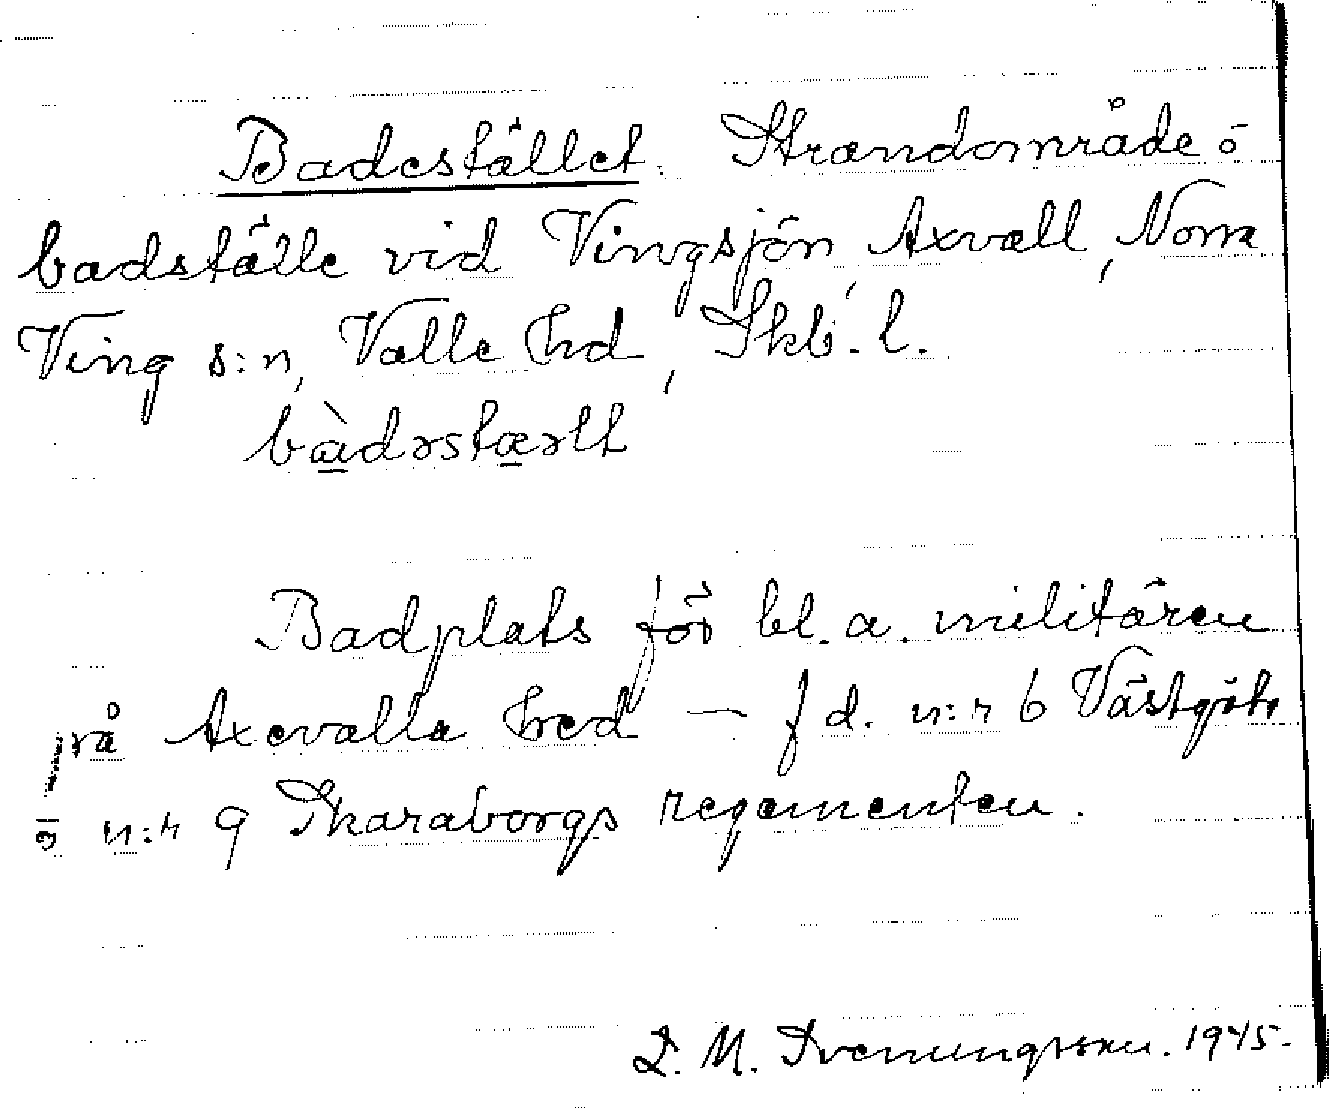 Badestället. Strandområde o
badställe vid Vingsjön, Axvall, Norra
Ving s:n, Valle hd, Skb. l.
bàdəstæəlt
Badplats för bl. a. militären
på Axevalla hed — f d. n:r 6 Västgöta
n:r 9 Skaraborgs regementen.
L. M. Svenungsson. 1945.